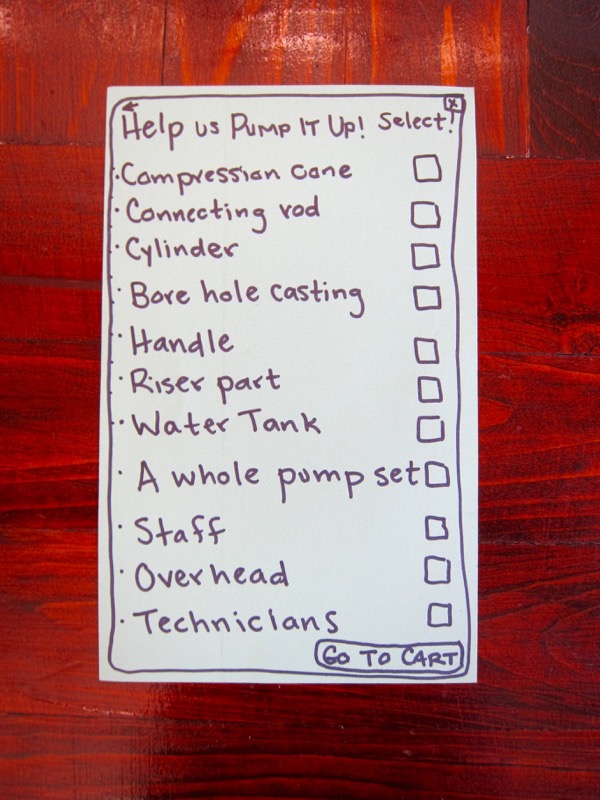 Help us Pump It Up! Select!
x
· Compression cone
· Connecting rod
· Cylinder
· Bore hole casting
· Handle
· Riser part
· Water Tank
· A whole pump set
· Staff
· Overhead
· Technicians
GO TO CART